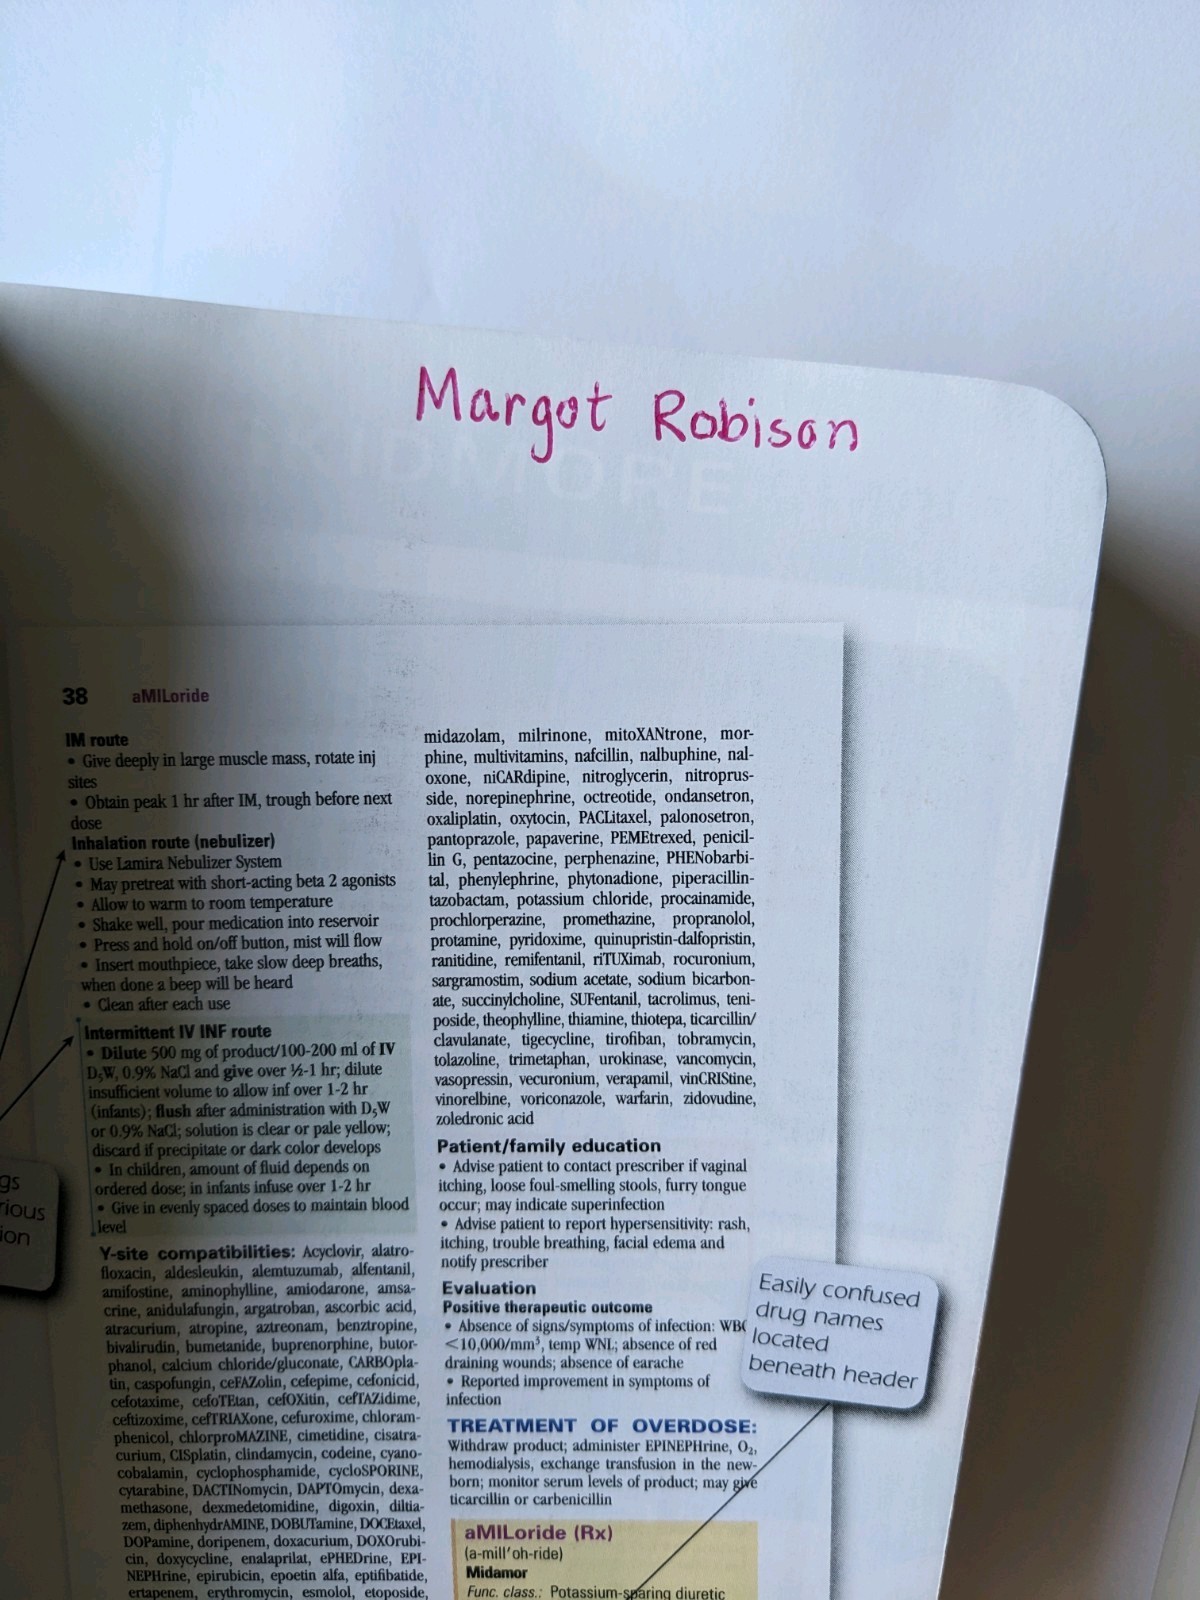 Margot Robison
38 aMILoride
IM route
• Give deeply in large muscle mass, rotate inj
sites
• Obtain peak 1 hr after IM, trough before next
dose
Inhalation route (nebulizer)
• Use Lamira Nebulizer System
• May pretreat with short-acting beta 2 agonists
• Allow to warm to room temperature
• Shake well, pour medication into reservoir
• Press and hold on/off button, mist will flow
• Insert mouthpiece, take slow deep breaths,
when done a beep will be heard
• Clean after each use
Intermittent IV INF route
• Dilute 500 mg of product/100-200 ml of IV
D₅W, 0.9% NaCl and give over ½-1 hr; dilute
insufficient volume to allow inf over 1-2 hr
(infants); flush after administration with D₅W
or 0.9% NaCl; solution is clear or pale yellow;
discard if precipitate or dark color develops
• In children, amount of fluid depends on
ordered dose; in infants infuse over 1-2 hr
• Give in evenly spaced doses to maintain blood
level
Y-site compatibilities: Acyclovir, alatro-
floxacin, aldesleukin, alemtuzumab, alfentanil,
amifostine, aminophylline, amiodarone, amsa-
crine, anidulafungin, argatroban, ascorbic acid,
atracurium, atropine, aztreonam, benztropine,
bivalirudin, bumetanide, buprenorphine, butor-
phanol, calcium chloride/gluconate, CARBOpla-
tin, caspofungin, ceFAZolin, cefepime, cefonicid,
cefotaxime, cefoTEtan, cefOXitin, cefTAZidime,
ceftizoxime, cefTRIAXone, cefuroxime, chloram-
phenicol, chlorproMAZINE, cimetidine, cisatra-
curium, CISplatin, clindamycin, codeine, cyano-
cobalamin, cyclophosphamide, cycloSPORINE,
cytarabine, DACTINomycin, DAPTOmycin, dexa-
methasone, dexmedetomidine, digoxin, diltia-
zem, diphenhydrAMINE, DOBUTamine, DOCEtaxel,
DOPamine, doripenem, doxacurium, DOXOrubi-
cin, doxycycline, enalaprilat, ePHEDrine, EPI-
NEPHrine, epirubicin, epoetin alfa, eptifibatide,
ertapenem, erythromycin, esmolol, etoposide,
midazolam, milrinone, mitoXANtrone, mor-
phine, multivitamins, nafcillin, nalbuphine, nal-
oxone, niCARdipine, nitroglycerin, nitroprus-
side, norepinephrine, octreotide, ondansetron,
oxaliplatin, oxytocin, PACLitaxel, palonosetron,
pantoprazole, papaverine, PEMEtrexed, penicil-
lin G, pentazocine, perphenazine, PHENobarbi-
tal, phenylephrine, phytonadione, piperacillin-
tazobactam, potassium chloride, procainamide,
prochlorperazine, promethazine, propranolol,
protamine, pyridoxime, quinupristin-dalfopristin,
ranitidine, remifentanil, riTUXimab, rocuronium,
sargramostim, sodium acetate, sodium bicarbon-
ate, succinylcholine, SUFentanil, tacrolimus, teni-
poside, theophylline, thiamine, thiotepa, ticarcillin/
clavulanate, tigecycline, tirofiban, tobramycin,
tolazoline, trimetaphan, urokinase, vancomycin,
vasopressin, vecuronium, verapamil, vinCRIStine,
vinorelbine, voriconazole, warfarin, zidovudine,
zoledronic acid
Patient/family education
• Advise patient to contact prescriber if vaginal
itching, loose foul-smelling stools, furry tongue
occur; may indicate superinfection
• Advise patient to report hypersensitivity: rash,
itching, trouble breathing, facial edema and
notify prescriber
Evaluation
Positive therapeutic outcome
• Absence of signs/symptoms of infection: WBC
<10,000/mm³, temp WNL; absence of red
draining wounds; absence of earache
• Reported improvement in symptoms of
infection
TREATMENT OF OVERDOSE:
Withdraw product; administer EPINEPHrine, O₂,
hemodialysis, exchange transfusion in the new-
born; monitor serum levels of product; may give
ticarcillin or carbenicillin
aMILoride (Rx)
(a-mill′oh-ride)
Midamor
Func. class.: Potassium-sparing diuretic
Easily confused
drug names
located
beneath header